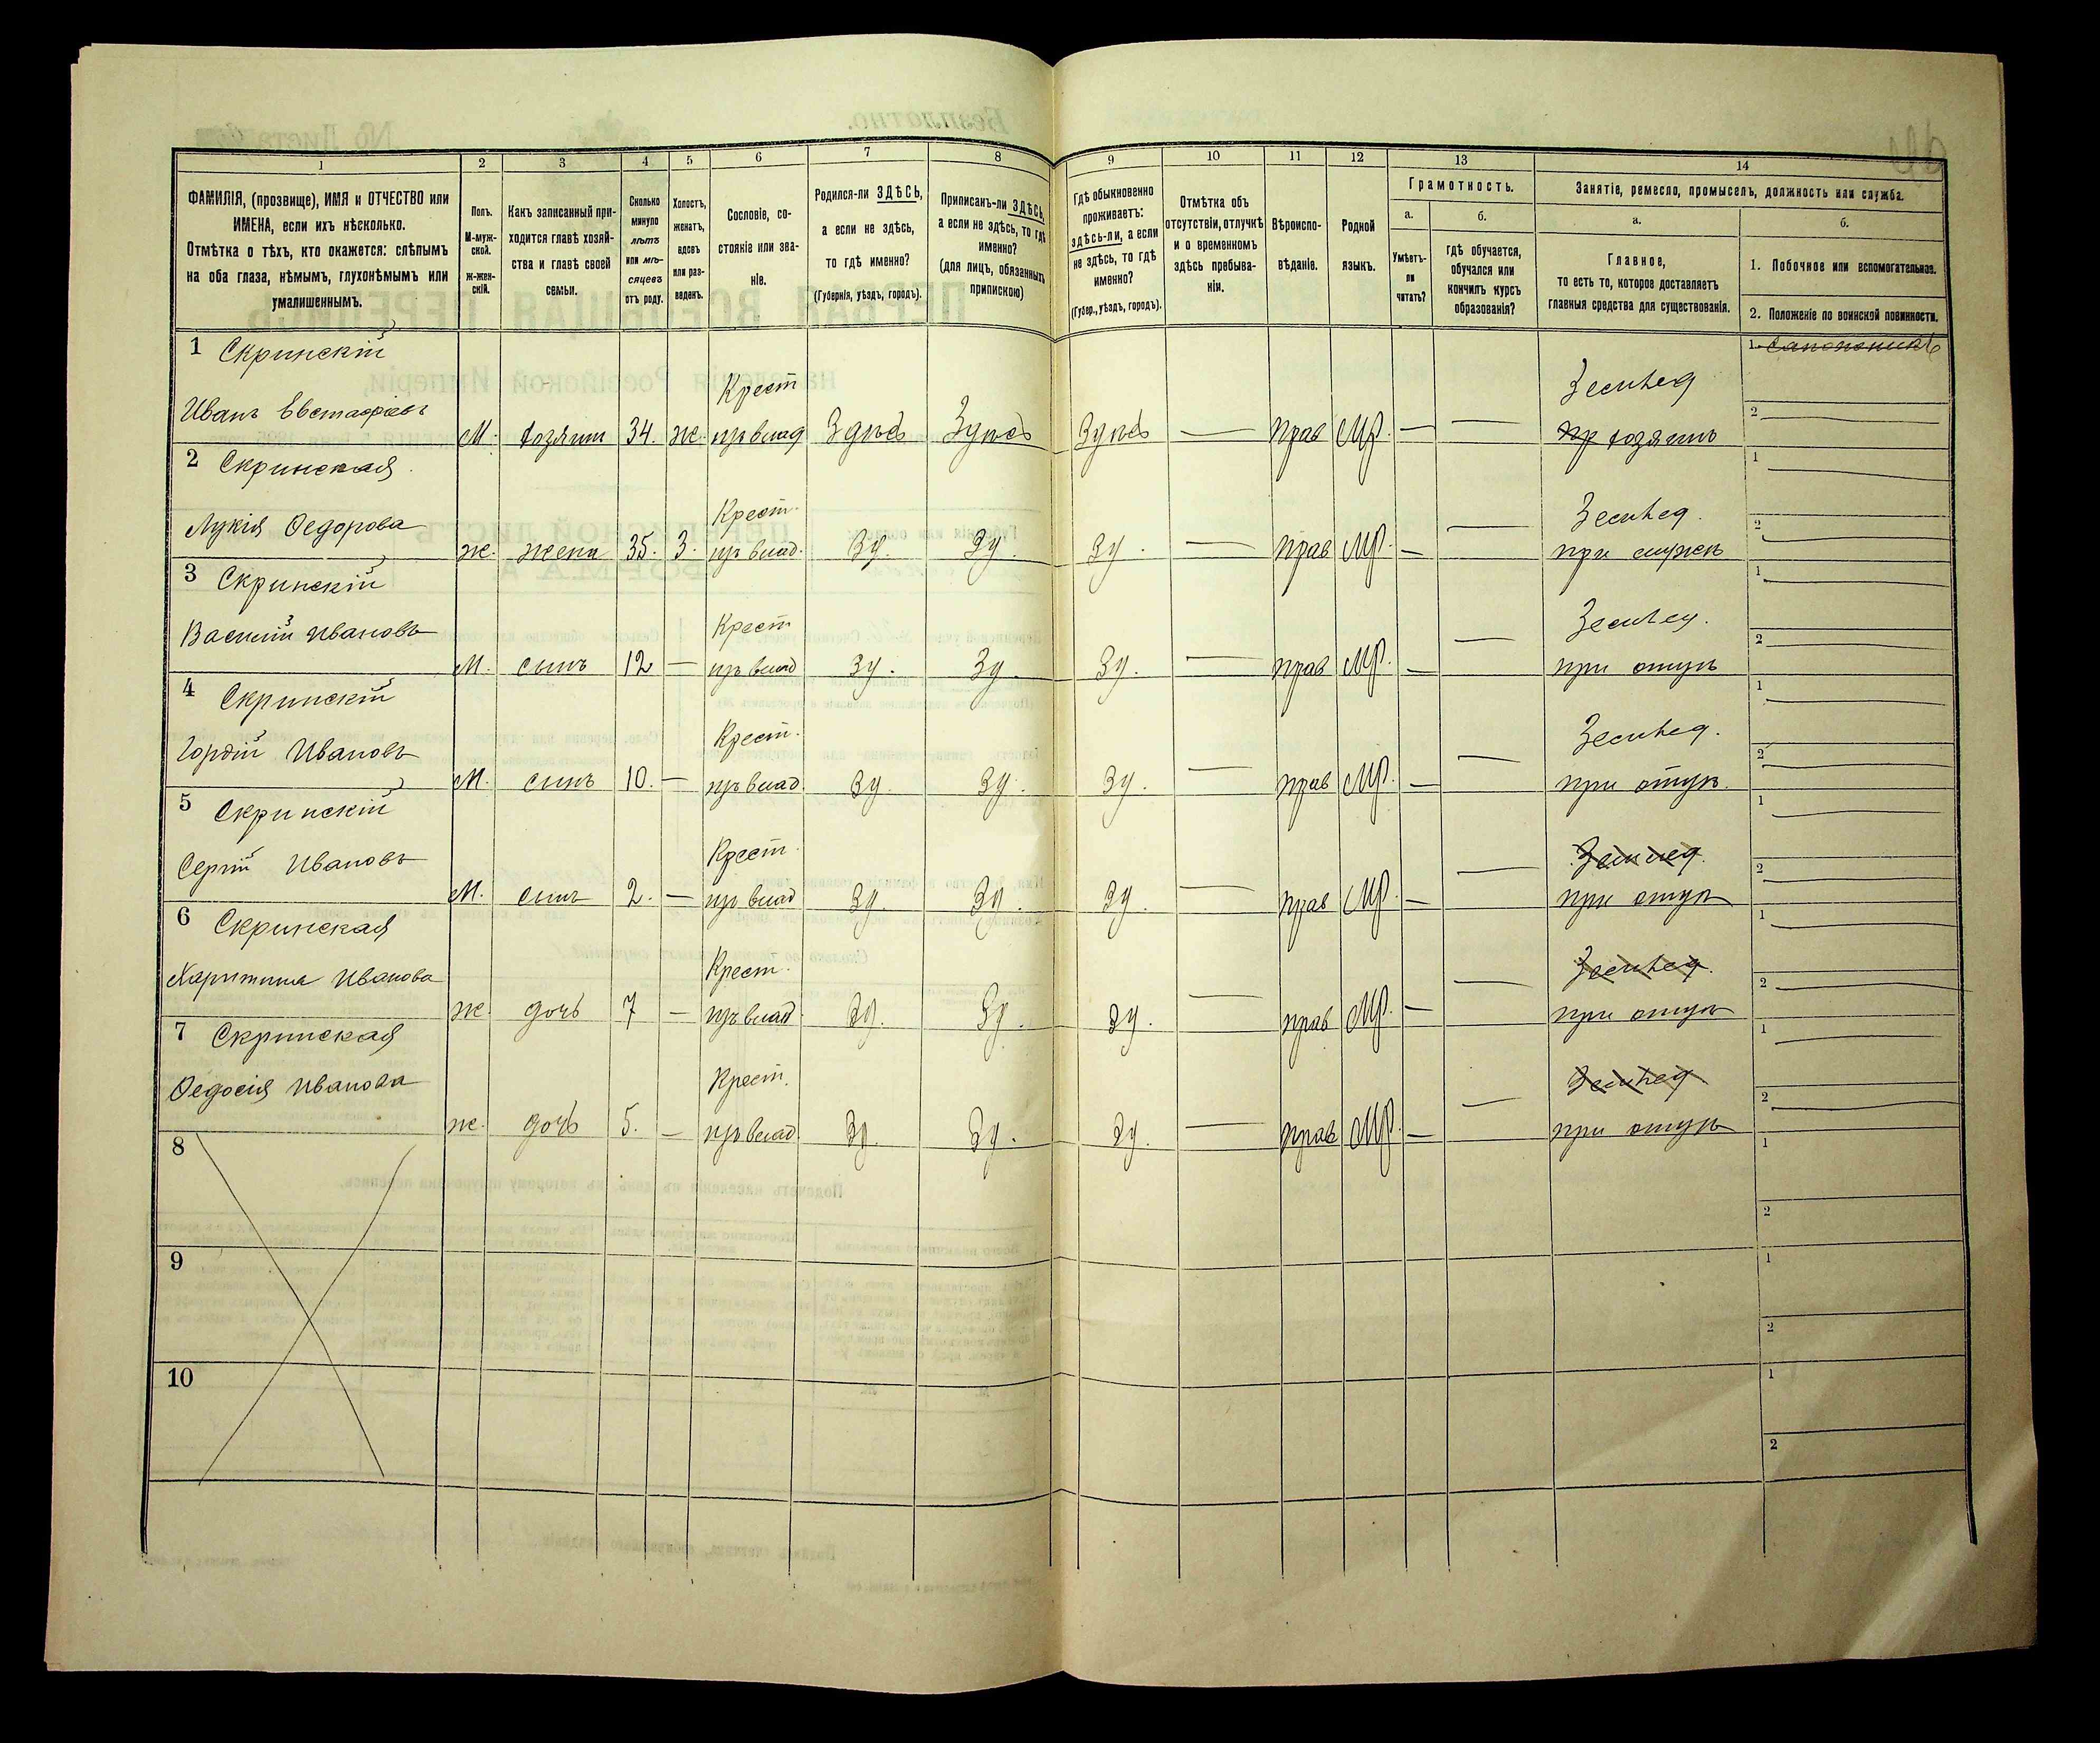 1
2
3
4
5
6
7
8
9
10
11
12
13
14
ФАМИЛІЯ, (прозвище), ИМЯ и ОТЧЕСТВО или
ИМЕНА, если ихъ нѣсколько.
Отмѣтка о тѣхъ, кто окажется: слѣпымъ
на оба глаза, нѣмымъ, глухонѣмымъ или
умалишеннымъ.
Полъ.
М-муж-
ской.
Ж-жен-
скій.
Какъ записанный при-
ходится главѣ хозяй-
ства и главѣ своей
семьи.
Сколько
минуло
лѣтъ
или мѣ-
сяцевъ
отъ роду.
Холостъ,
женатъ,
вдовъ
или раз-
веденъ.
Сословіе, со-
стояніе или зва-
ніе.
Родился-ли ЗДѢСЬ,
а если не здѣсь,
то гдѣ именно?
(Губернія, уѣздъ, городъ).
Приписанъ-ли ЗДѢСЬ,
а если не здѣсь, то гдѣ
именно?
(для лицъ, обязанныхъ
припискою)
Гдѣ обыкновенно
проживаетъ:
здѣсь-ли, а если
не здѣсь, то гдѣ
именно?
(Губер., уѣздъ, городъ).
Отмѣтка объ
отсутствіи, отлучкѣ
и о временномъ
здѣсь пребыва-
ніи.
Вѣроиспо-
вѣданіе.
Родной
языкъ.
Грамотность.
а.
Умѣетъ-
ли
читать?
б.
Гдѣ обучается,
обучался или
кончилъ курсъ
образованія?
Занятіе, ремесло, промыселъ, должность или служба.
а.
Главное,
то есть то, которое доставляетъ
главныя средства для существованія.
б.
1. Побочное или вспомогательное.
2. Положеніе по воинской повинности.
1 Скринскій
Иванъ Евстафіевъ
М. хозяин 34. ж. Крест
пр влад Здѣсь Здѣсь Здѣсь — Прав МР. — — Землед
хозяинъ
1. Сапожникъ
2
2 Скринская
Лукія Ѳедорова
ж. жена 35. З. Крест.
пр влад. Зд. Зд. Зд. — Прав МР. — — Землед.
при мужѣ
1
2
3 Скринскій
Василій Ивановъ
М. сынъ 12 — Крест
пр влад Зд. Зд. Зд. — Прав МР. — — Землед.
при отцѣ
1
2
4 Скринскій
Гордій Ивановъ
М. сынъ 10. — Крест.
пр влад. Зд. Зд. Зд. — Прав МР. — — Землед.
при отцѣ.
1
2
5 Скринскій
Сергій Ивановъ
М. сынъ 2. — Крест.
пр влад Зд. Зд. Зд. — Прав МР. — — Землед.
при отцѣ
1
2
6 Скринская
Харитина Иванова
ж. дочь 7 — Крест.
пр влад Зд. Зд. Зд. — Прав МР. — — Землед.
при отцѣ
1
2
7 Скринская
Ѳедосія Иванова
ж. дочь 5. — Крест.
пр влад Зд. Зд. Зд. — Прав МР. — — Землед
при отцѣ
1
2
8
1
2
9
1
2
10
1
2